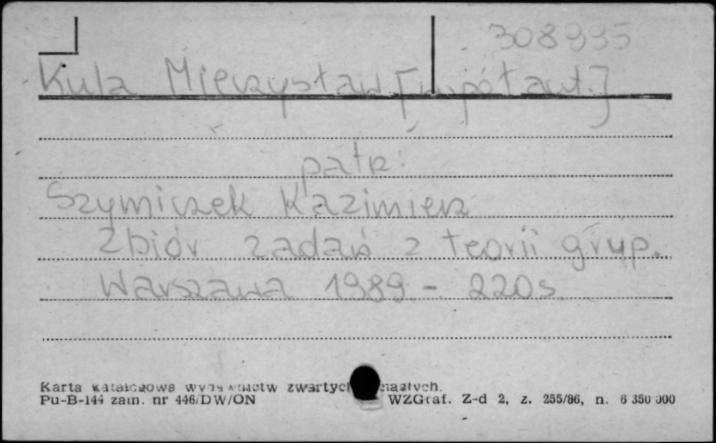 308995
Kula Mieczysław [współaut.]
patrz:
Szymiczek Kazimierz
Zbiór zadań z teorii grup.
Warszawa 1989. - 220 s.
Karta katalogowa wydawnictw zwartych
Pu-B-144 zam. nr 446/DW/ON WZGraf. Z-d 2, z. 255/86, n. 6 350 000